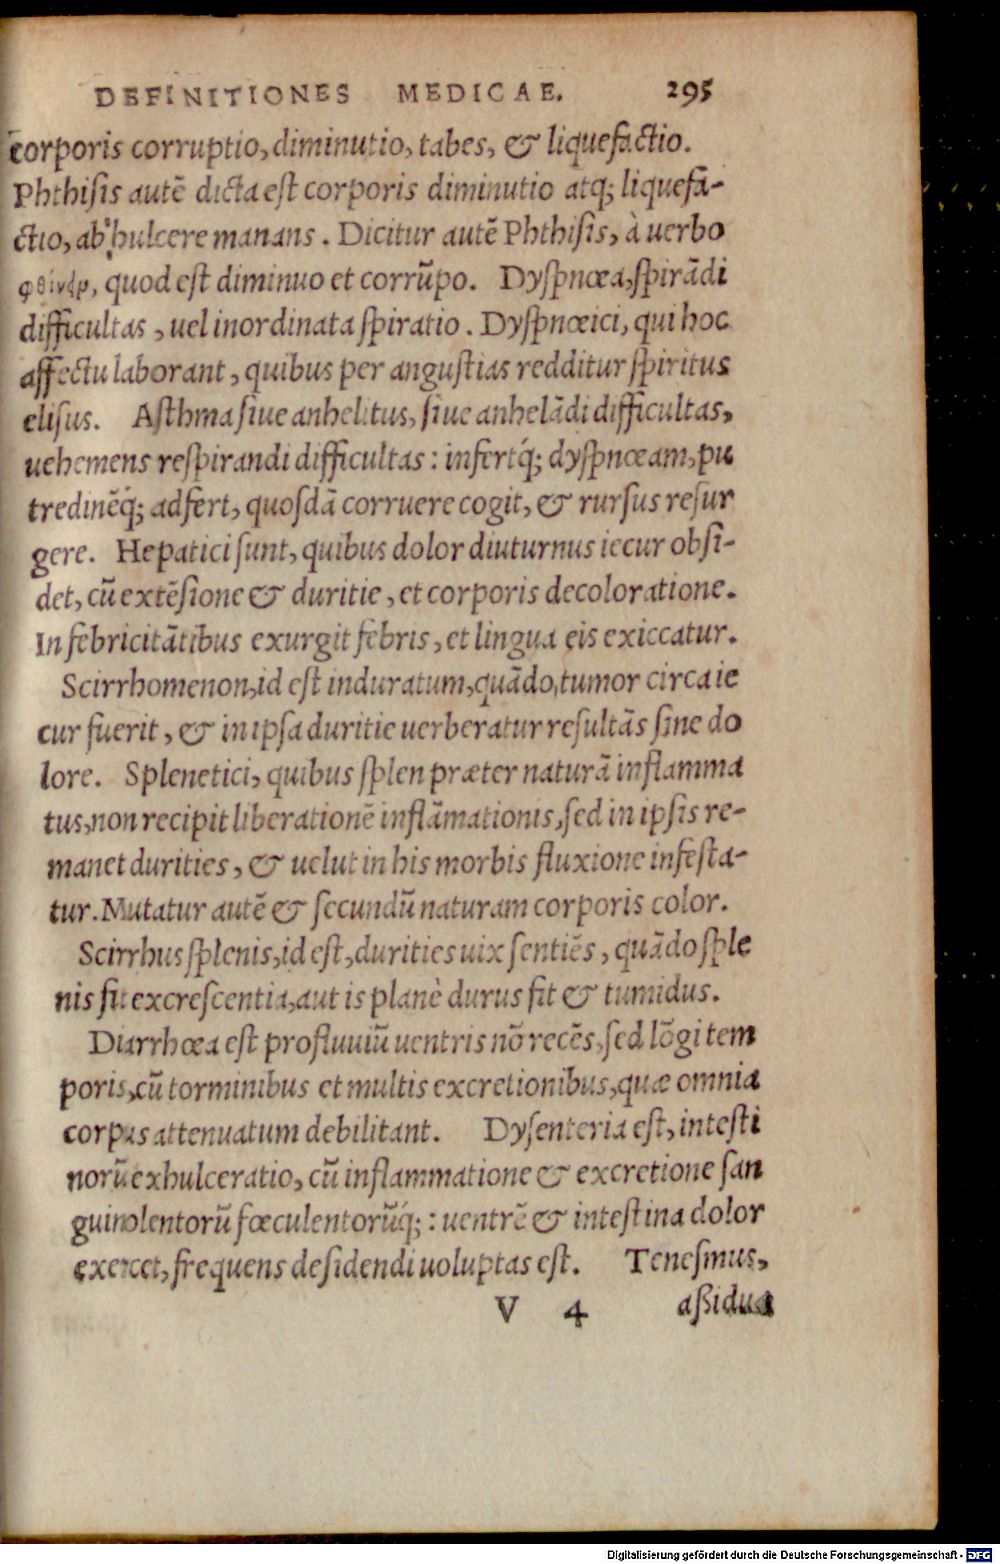 DEFINITIONES MEDICAE. 295
corporis corruptio, diminutio, tabes, & liquefactio.
Phthisis autē dicta est corporis diminutio atq; liquefa-
ctio, ab hulcere manans. Dicitur autē Phthisis, à uerbo
φθίνειν, quod est diminuo et corrūpo. Dyspnœa, spirādi
difficultas, uel inordinata spiratio. Dyspnœici, qui hoc
affectu laborant, quibus per angustias redditur spiritus
elisus. Asthma siue anhelitus, siue anhelādi difficultas,
uehemens respirandi difficultas: infertq́; dyspnœam, pu
tredinēq́; adfert, quosdā corruere cogit, & rursus resur
gere. Hepatici sunt, quibus dolor diuturnus iecur obsi-
det, cū extēsione & duritie, et corporis decoloratione.
In febricitātibus exurgit febris, et lingua eis exiccatur.
Scirrhomenon, id est induratum, quādo, tumor circa ie
cur fuerit, & in ipsa duritie uerberatur resultās sine do
lore. Splenetici, quibus splen præter naturā inflamma
tus, non recipit liberationē inflāmationis, sed in ipsis re-
manet durities, & uelut in his morbis fluxione infesta-
tur. Mutatur autē & secundū naturam corporis color.
Scirrhus splenis, id est, durities uix sentiēs, quādo sple
nis fit excrescentia, aut is planè durus fit & tumidus.
Diarrhœa est profluuiū uentris nō recēs, sed lōgi tem
poris, cū torminibus et multis excretionibus, quæ omnia
corpus attenuatum debilitant. Dysenteria est, intesti
norū exhulceratio, cū inflammatione & excretione san
guinolentorū fœculentorūq́;: uentrē & intestina dolor
exercet, frequens desidendi uoluptas est. Tenesmus,
V 4 aßidua
Digitalisierung gefördert durch die Deutsche Forschungsgemeinschaft - DFG